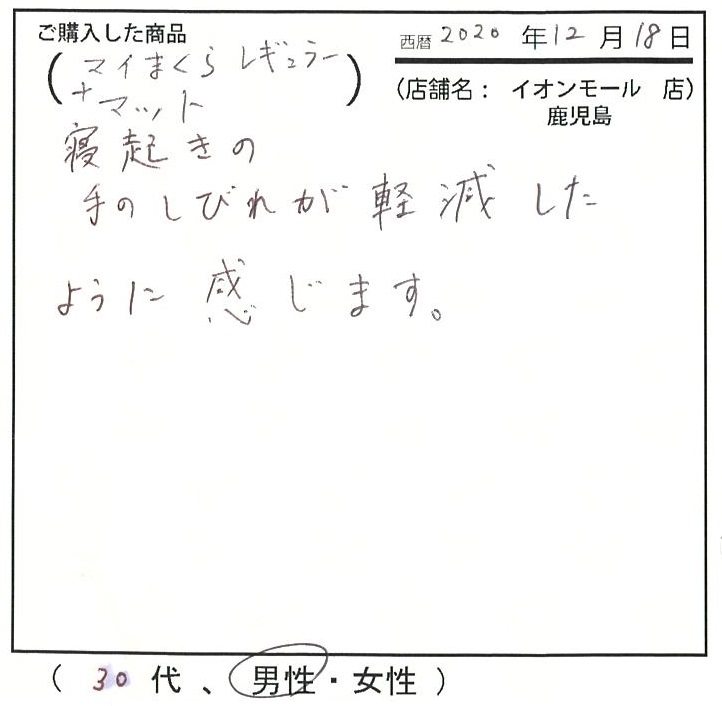 ご購入した商品
西暦 2020 年 12 月 18 日
(マイまくら レギュラー
+ マット)
(店舗名： イオンモール 店)
鹿児島
寝起きの
手のしびれが軽減した
ように感じます。
( 30 代 、 男性・女性 )